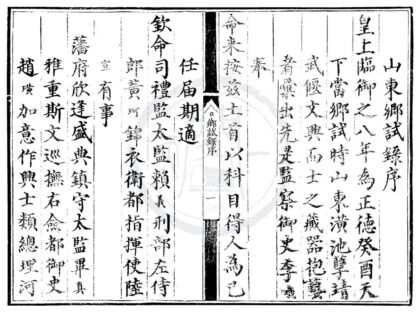 山東鄉試錄序
皇上臨御之八年為正德癸酉天
下當鄉試時山東潢池孽靖
武偃文興而士之藏器抱藝
者出先是監察御史李
奉
命來按茲土首以科目得人為己
鄉試錄序
一
任屆期適
欽命司禮監太監賴義刑部左侍
郎黃珂錦衣衛都指揮使陸
宣有事
藩府欣逢盛典鎮守太監畢真
雅重斯文巡撫右僉都御史
趙璜加意作興士類總理河